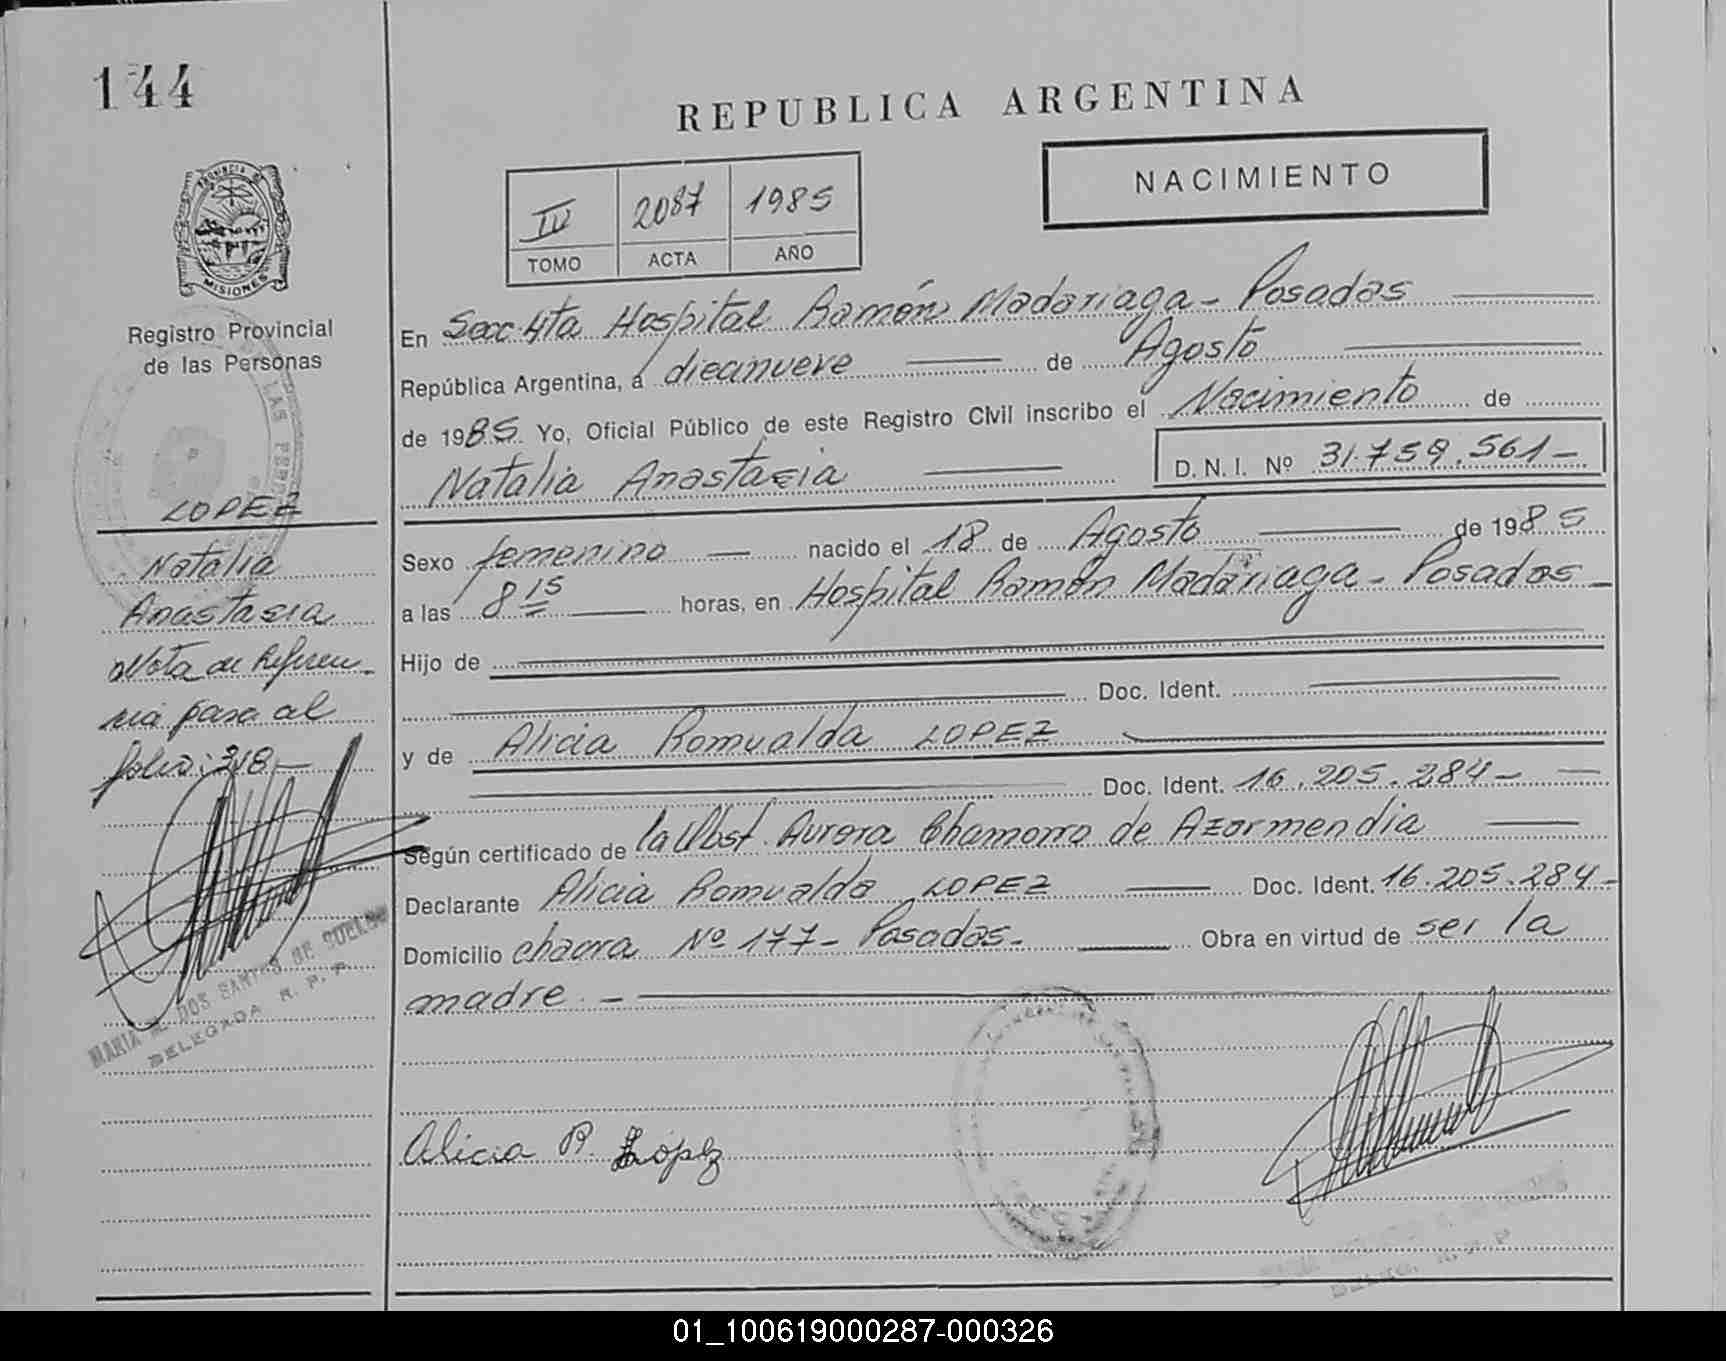 144
REPUBLICA ARGENTINA
PROVINCIA DE
MISIONES
Registro Provincial
de las Personas
IV 2087 1985
TOMO ACTA AÑO
NACIMIENTO
En Secc 4ta Hospital Ramón Madariaga - Posadas
República Argentina, a diecinueve de Agosto
de 1985. Yo, Oficial Público de este Registro Civil inscribo el Nacimiento de
Natalia Anastasia
D. N. I. Nº 31.759.561-
Sexo femenino nacido el 18 de Agosto de 1985
a las 8 15 horas, en Hospital Ramón Madariaga - Posadas
Hijo de
Doc. Ident.
y de Alicia Romualda LOPEZ
Doc. Ident. 16.205.284-
Según certificado de la Obst. Aurora Chamorro de Azarmendia
Declarante Alicia Romualda LOPEZ Doc. Ident. 16.205.284-
Domicilio chacra Nº 177- Posadas- Obra en virtud de ser la
madre.-
Alicia R. López
LOPEZ
Natalia
Anastasia
Nota de Referen-
cia pasa al
folio: 318-
MARIA DOS SANTOS DE
DELEGADA R. P. P.
01_100619000287-000326